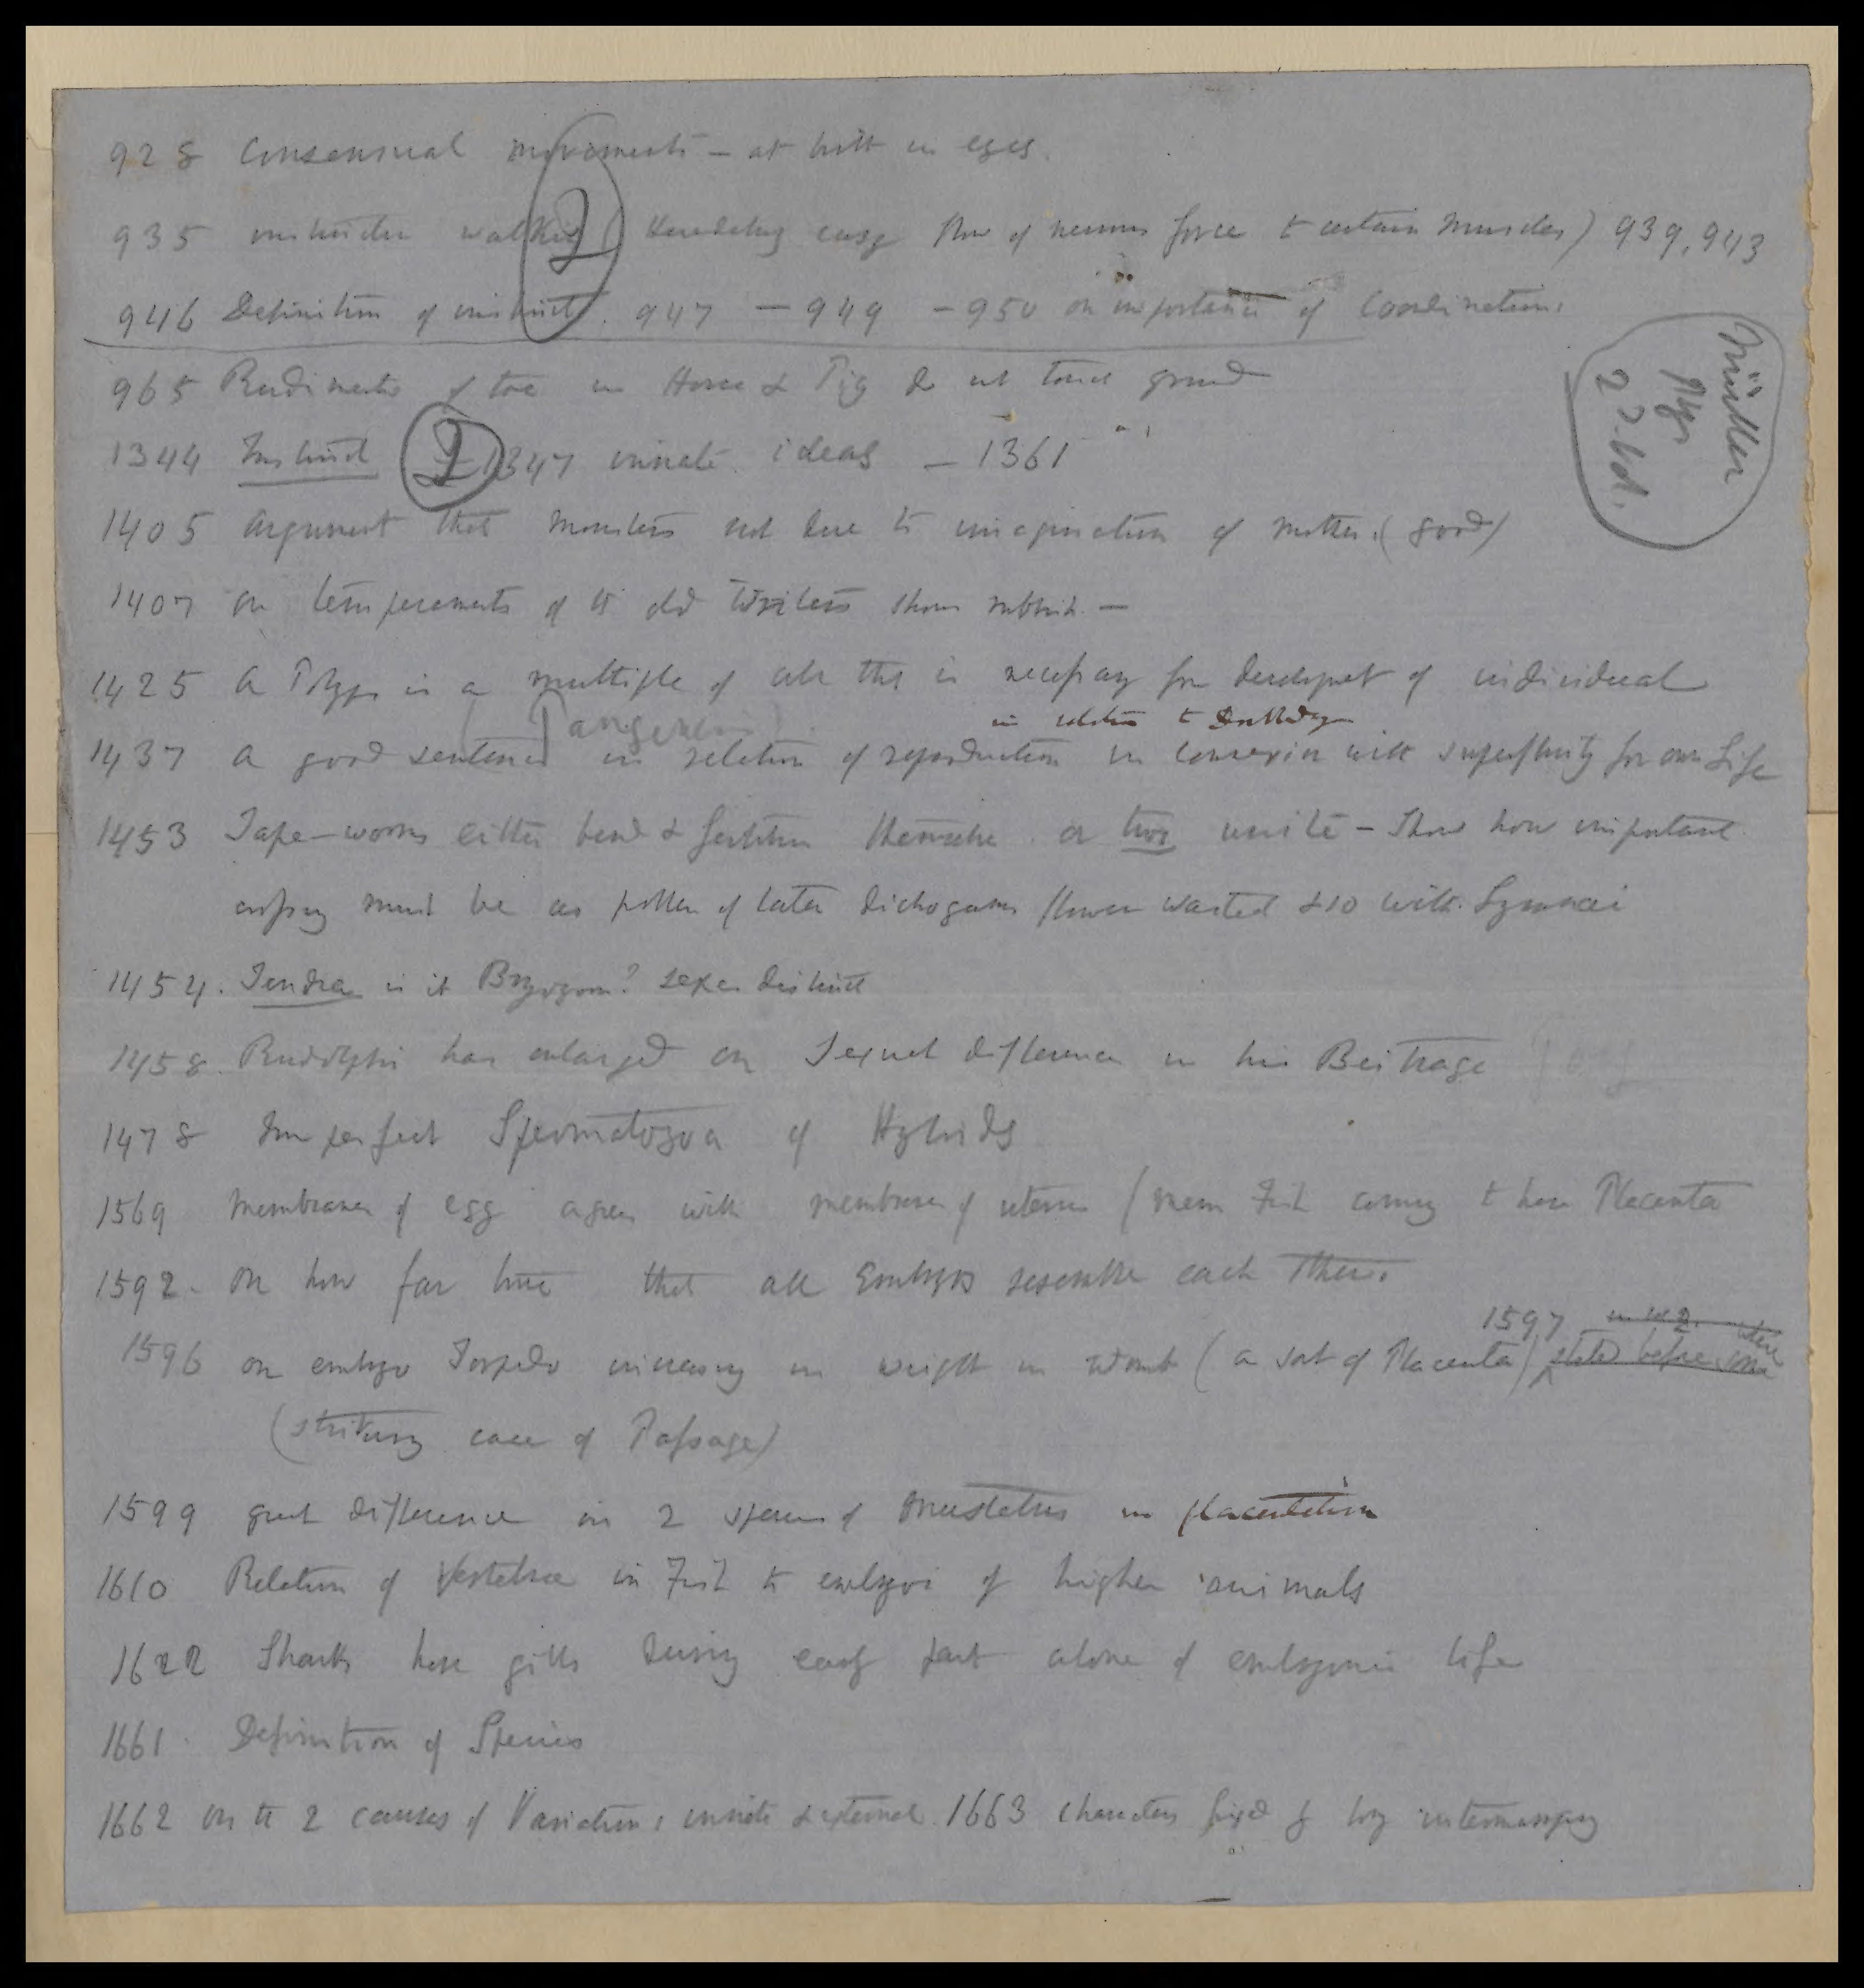 928 Consensual movements — at birth in eyes.
935 instinctive walking (hereditary easy flow of nervous force to certain muscles) 939, 943
2
946 Definition of instinct. 947 — 949 — 950 on importance of Coordination.
965 Rudiments of toe in Horse & Pig do not touch ground
Müller
Phys
2d. Vol.
1344 Instinct 2 — 1347 innate ideas — 1361
1405 Argument that monsters not due to imagination of mother. (good)
1407 On temperaments of the old writers shown —
1425 A Polyp is a multiple of all that is necessary for development of individual
(Pangenesis)
in relation to
1437 a good sentence in relation of reproduction in connexion with superfluity for own Life
1453 Tape-worms either bend & fertilise themselves or two unite — Show how important
crossing must be as pollen of later dichogam flower wasted & so with Lymnaei
1454. Tendra is it Bryozoon? sexes distinct
1458. Rudolphi has enlarged on Sexual difference in his Beitrage
1478 Imperfect Spermatozoa of Hybrids
1569 Membranes of egg agree with membranes of uterus (mem Fish coming to have Placenta
1592 — On how far true that all Embryos resemble each other.
1597 in vol 2. where
1596 on embryo Torpedo increasing in weight in womb (a sort of Placenta) stated before some
(striking case of Passage)
1599 great difference in 2 species of Mustelus in placentation
1610 Relation of Vertebræ in Fish to embryos of higher animals
1622 Sharks have gills during early part alone of embryonic life
1661. Definition of Species
1662 On the 2 causes of Variations innate & external. 1663 characters fixed by intercrossing